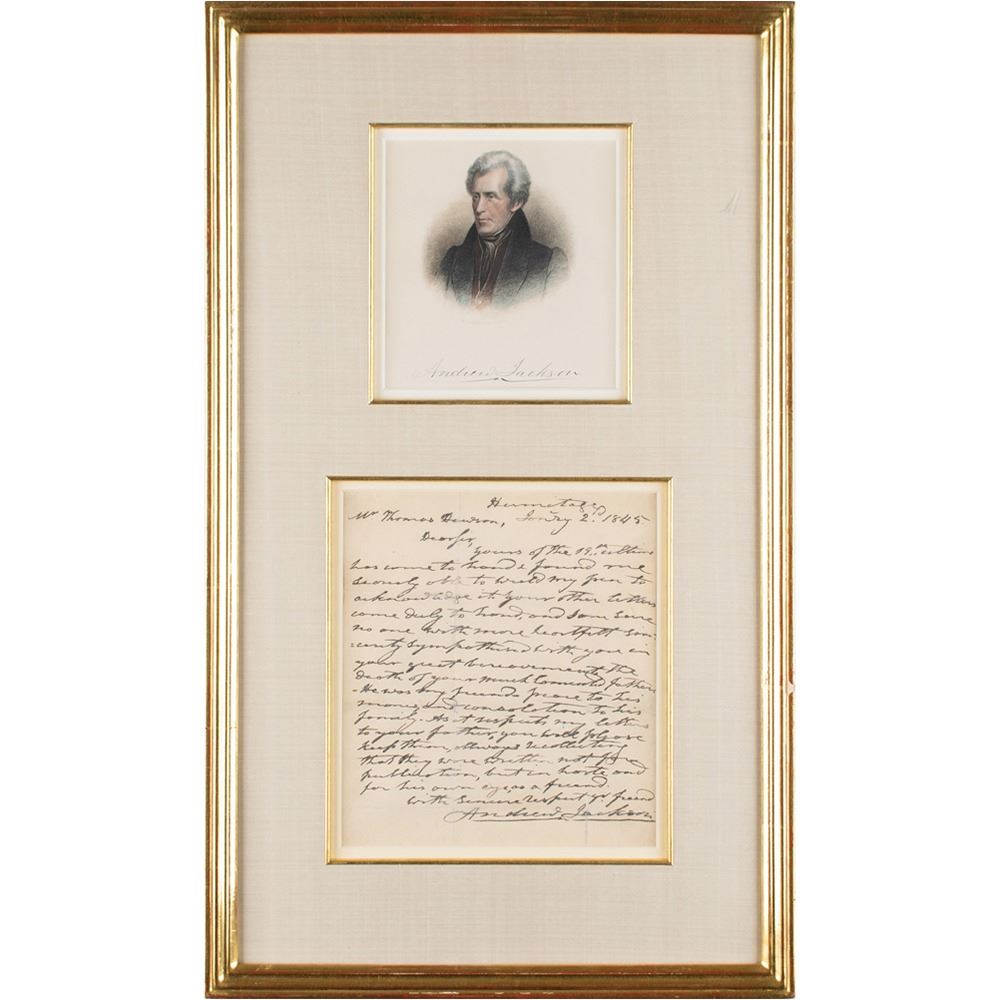 Andrew Jackson
Hermitage
Mr Thomas Dawson, Janry 2. 1845
Dearsir,
yours of the 19th ultimo
has come to hand & found me
scarcely able to wield my pen to
acknowledge it. your other letters
came duly to hand, and I am sure
no one with more heartfelt sin-
=cerity Sympathised with you in
your great bereavement, the
death of your much lamented father
- He was my friend peace to his
manes, and consolation to his
family. As it respects my letters
to your father, you will please
keep them, always recollecting
that they were written not for
publication, but in haste and
for his own eye, as a friend.
with Sincere respect yr friend
Andrew Jackson